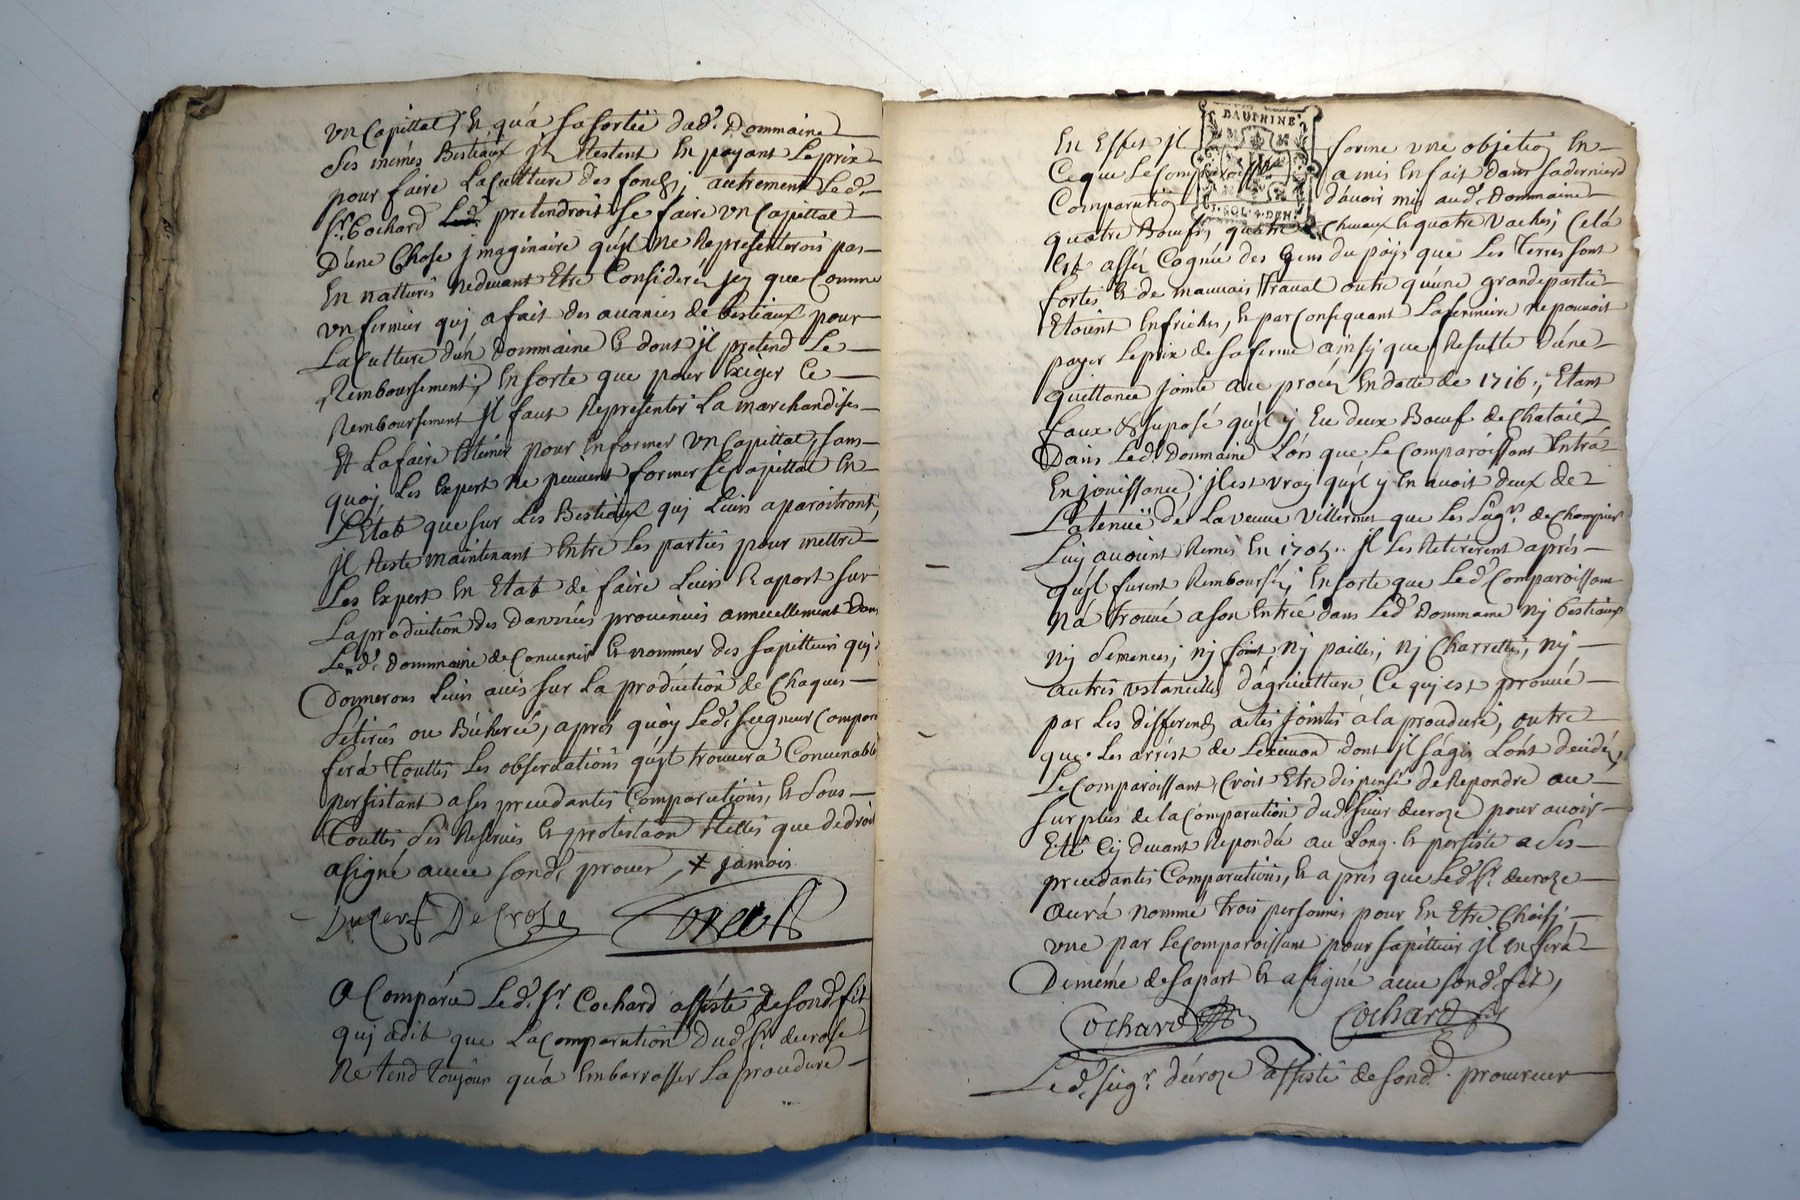 un Capittal, Et qu'á sa sortië dud.t Dommaine
ses mémés Bestiaux jls Restent En payant Le prix
pour faire La Culture des fonds, autrement Led.t
S.r Cochard pretendroit se faire un Capittal
D'une Chose jmaginaire qu'jl ne Representerois pas
En natturës ne devant Etre Consideré jcy que Comme
un fermier quj a fait des avances de bestiaux pour
La Culture d'un dommaine Et dont jl pretend Le
Remboursement; En sorte que pour Exiger Ce
Remboursement jl faut Representer La marchandise
Et La faire Estimer pour En former un Capittal, sans
quoy Les Expert ne peuvent former Le Capittal En
L'Etat que sur Les Bestiaux quj Leurs aparoitront,
jl Reste maintenant Entre Les partiës pour mettre
Les Expert En Etat de faire Leurs Raport sur
La production des danrées provenues annuellement dans
Led.t dommaine de Convenir Et nommer des sapitteurs quj
Donnerons Leurs avis sur La production de Chaques
séterés ou Bicherée, aprés quoy Led.t seigneur Compar
fera touttes Les observations qu'jl trouvera Convenable
persistant a ses precedantes Comparutions, Et sous
touttes ses Reserves Et protestaõn telles que de droit
a signé avec son d.t procur, + jamois
Ducerf De Croze
A Comparu Led.t S.r Cochard assisté de son d.t fils
quj a dit que La Comparution Dud.t S.r decroze
Ne tend toujour qu'á Embarrasser La procedure
DAUPHINE
En Effet jl forme une objetion En
Ce que Le Comparoissant a mis En fait dans sa derniere
Comparution d'avoir mis aud.t Dommaine
quatre Bœufs, quatre Chevaux Et quatre vaches; Celá
Est assés Cognüe des gens du pays que Les terres sont
fortes Et de mauvais travail outre qu'une grande partie
Etoient En friches, Et par Consequant La fermiere ne pouvoit
payer Le prix de sa ferme ainsy que Resulte D'une
quittance jointe au procés En datte de 1716; Etant
faux & suposé qu'jl y Eu deux Bœuf de Chatail
Dans Led.t Dommaine Lors que Le Comparoissant Entrá
En jouissance; jl est vray qu'jl y En avoit deux de
La tenuë de La veuve villermet que Les seig.rs de Champier
Luy avoient Remis En 1705.. jl Les Retirérent aprés
qu'jl furent Remboursés; En sorte que Led.t Comparoissant
N'á trouvé a son Entrée dans Led.t Dommaine nj bestiaux
nj semences, nj foint nj pailles, nj Charrettes, nj
autrës ustancilles d'agriculture Ce quj est prouvé
par Les differends actes jointes á La procedure, outre
que Les arrest de dont jl s'ágis L'ont decidé,
Le Comparoissant Croit Etre dispensé de Repondre au
surplus de la Comparution dud.t sieur decroze pour avoir
Eté Cy devant Repondû au Long. Et persiste a ses
precedantes Comparutions, Et aprés que Led.t S.r decroze
Aurá nommé trois personnes pour En Etre Choisj
une par Le Comparoissant pour sapitteur jl En ferá
De méme de sa part Et a signé avec son d.t fils,
Cochard Cochard fils
Led.t seig.r decroze assisté de son d.t procureur